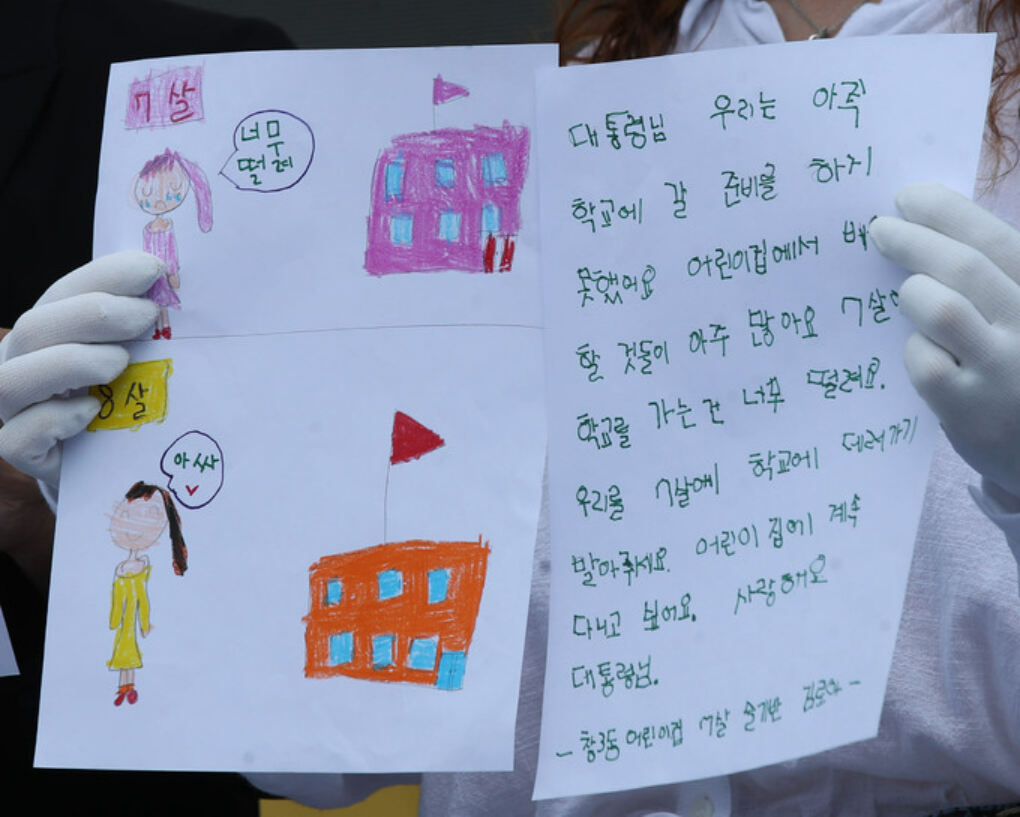 7살
너무
떨려
8살
아싸
대통령님 우리는 아직
학교에 갈 준비을 하지
못했어요 어린이집에서
할 것들이 아주 많아요 7살에
학교를 가는 건 너무 떨려요.
우리를 7살에 학교에 데려가기
말아주세요. 어린이집에 계속
다니고 싶어요. 사랑해요
대통령님.
- 창3동 어린이집 7살 슬기반 -